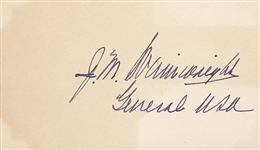 J. M. Wainwright
General USA